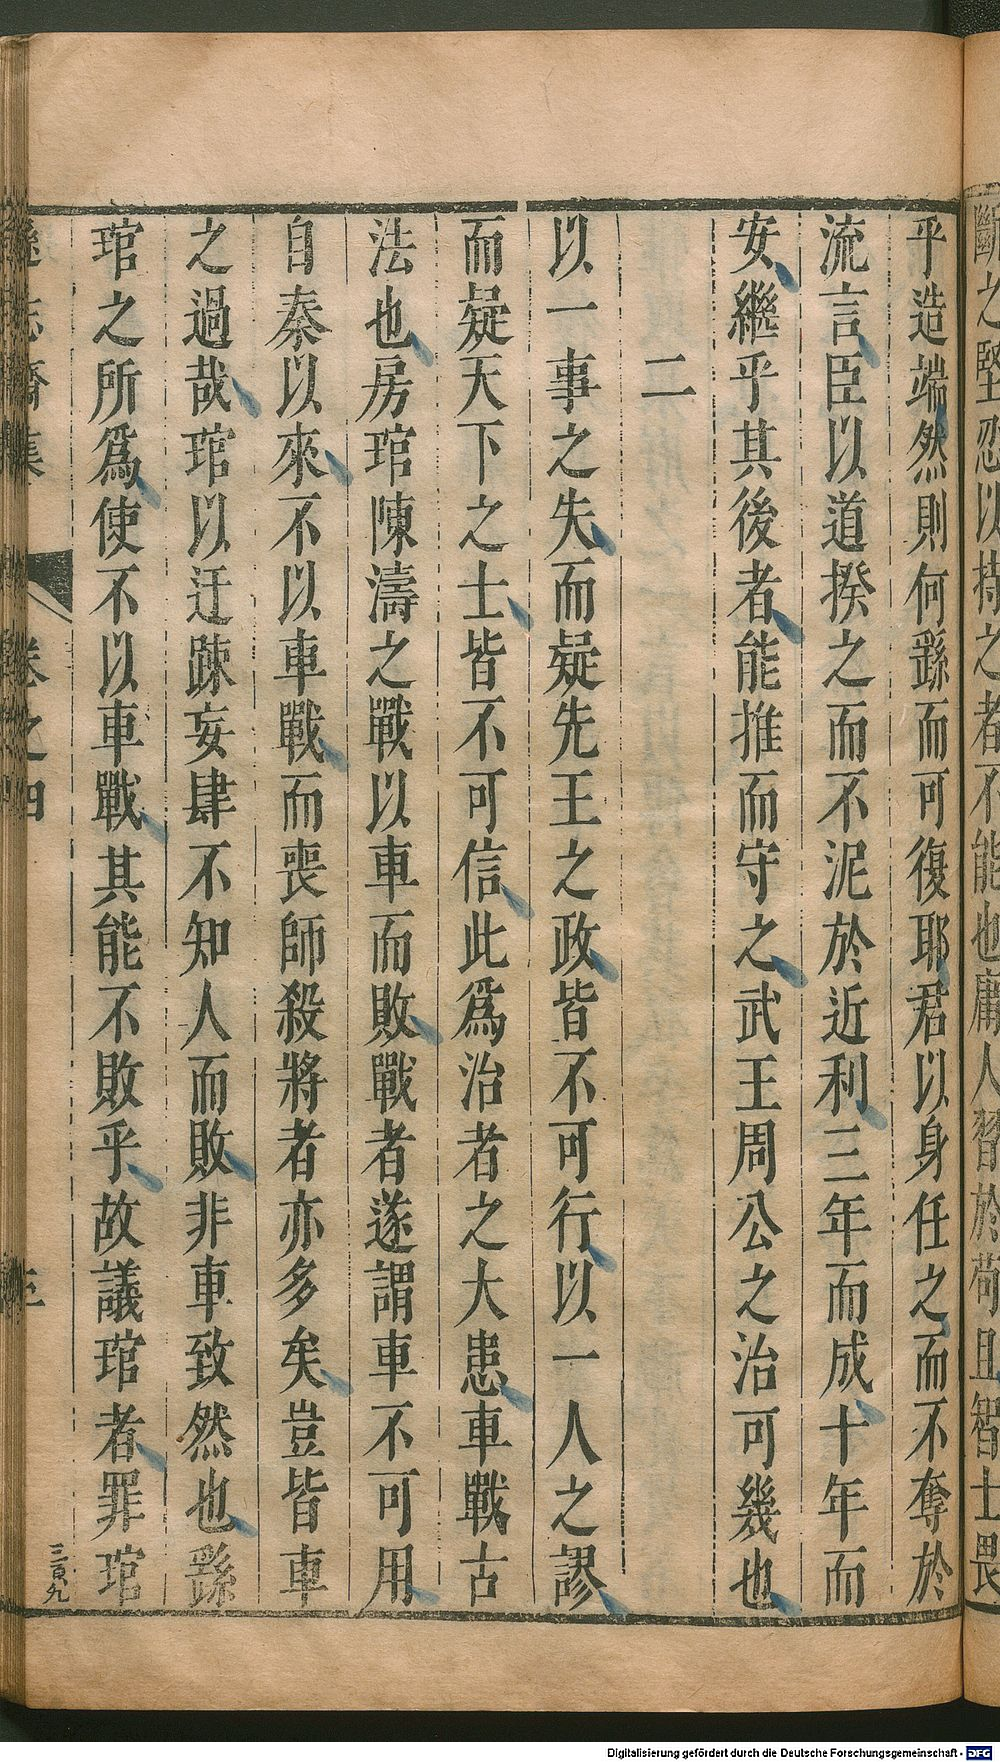 斷之堅忍以持之者不能也庸人習於苟且智士畏
乎造端然則何繇而可復耶君以身任之而不奪於
流言臣以道揆之而不泥於近利三年而成十年而
安繼乎其後者能推而守之武王周公之治可幾也
二
以一事之失而疑先王之政皆不可行以一人之謬
而疑天下之士皆不可信此爲治者之大患車戰古
法也房琯陳濤之戰以車而敗戰者遂謂車不可用
自秦以來不以車戰而喪師殺將者亦多矣豈皆車
之過哉琯以迂踈妄肆不知人而敗非車致然也繇
琯之所爲使不以車戰其能不敗乎故議琯者罪琯
三百九
遜志齋集
卷之四
Digitalisierung gefördert durch die Deutsche Forschungsgemeinschaft - DFG